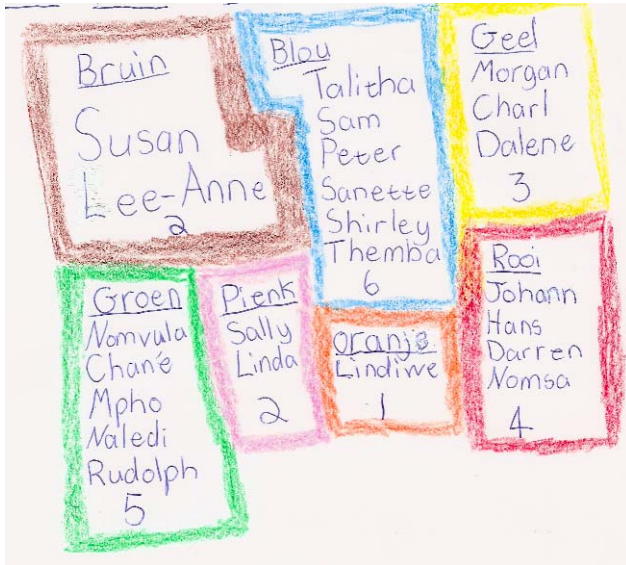 Bruin
Susan
Lee-Anne
2
Blou
Talitha
Sam
Peter
Sanette
Shirley
Themba
6
Geel
Morgan
Charl
Dalene
3
Groen
Nomvula
Chané
Mpho
Naledi
Rudolph
5
Pienk
Sally
Linda
2
oranje
Lindiwe
1
Rooi
Johann
Hans
Darren
Nomsa
4